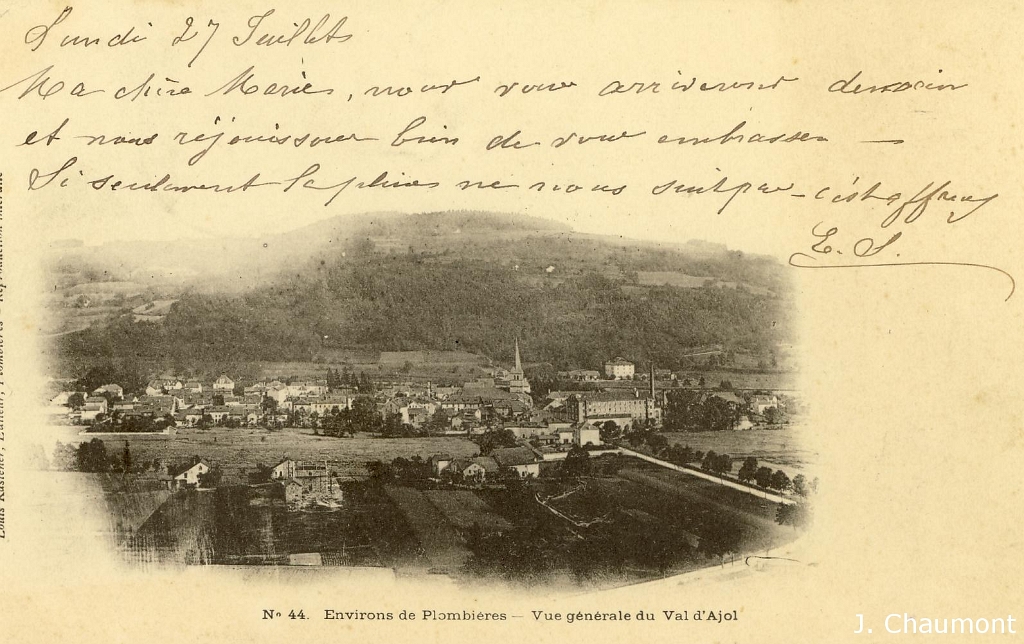 Lundi 27 Juillets
Ma chère Marie, nous vous arriverons demain
et nous réjouissons bien de vous embrasser —
Si seulement la pluie ne nous suit pas - c'est affreux
E. S.
Louis Kastener, Editeur, Plombières - Reproduction interdite
No 44. Environs de Plombières — Vue générale du Val d'Ajol
J. Chaumont